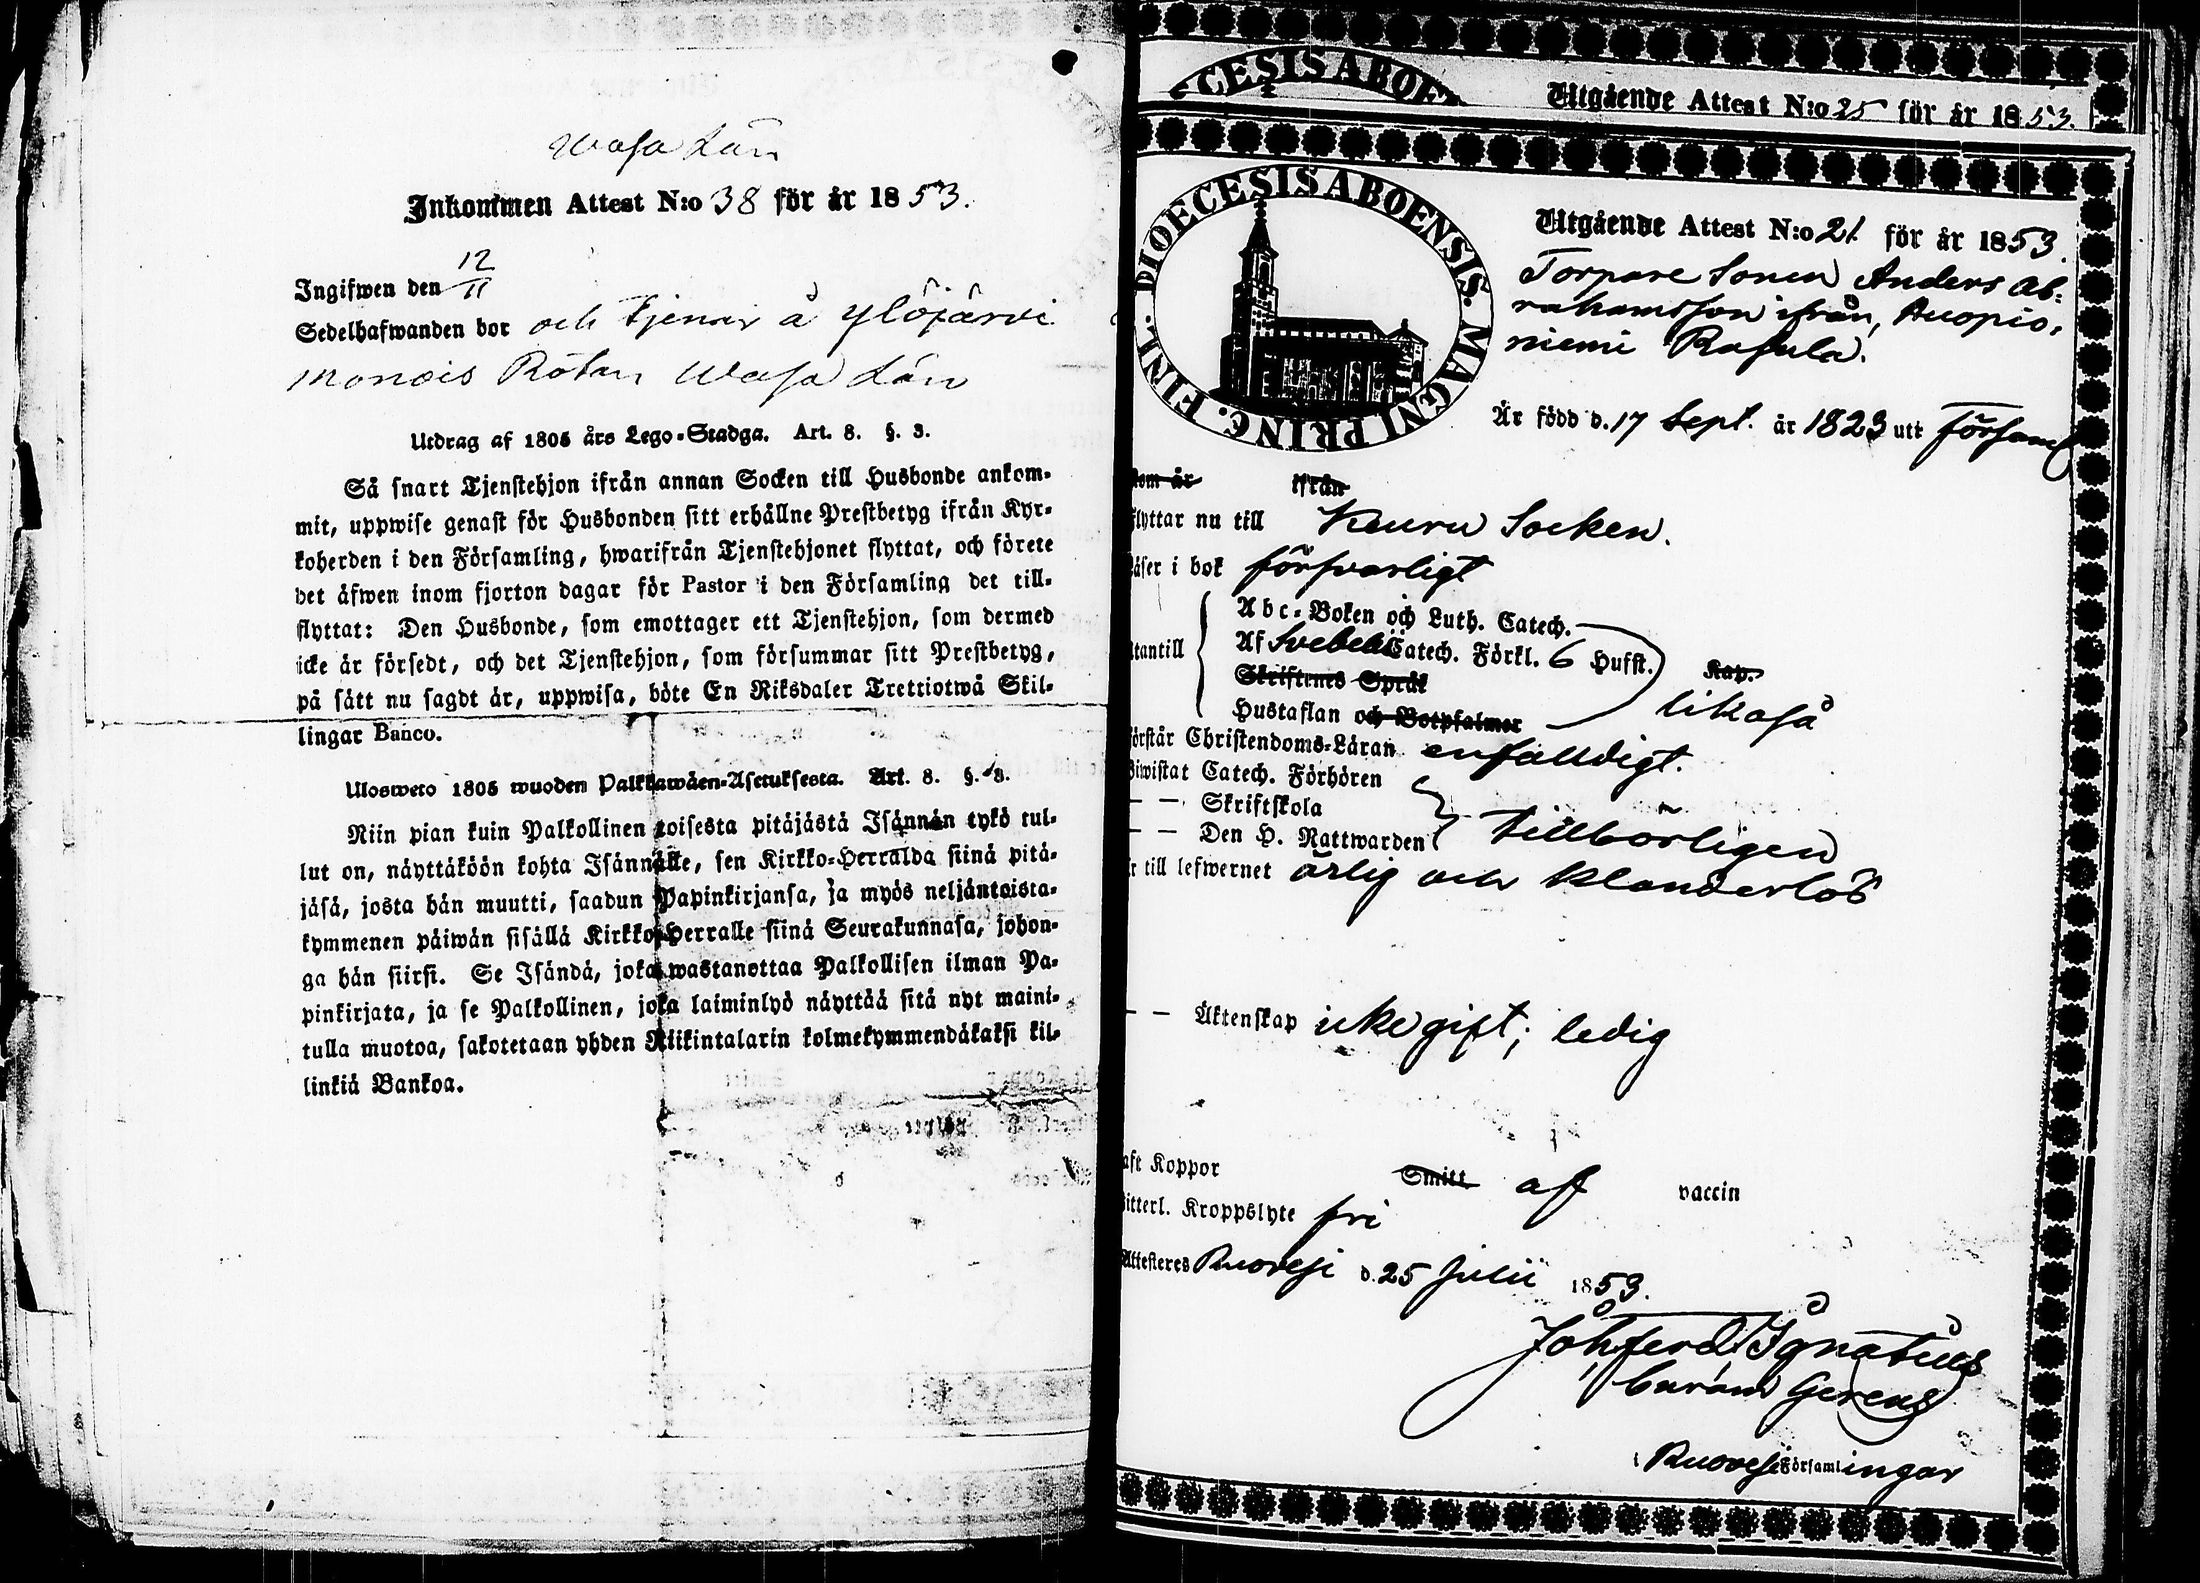 Wasa Län
Inkommen Attest N:o 38 för år 1853.
Ingifwen den 12/11
Sedelhafwanden bor och tjenar å Ylöjärvi
Rotan Wasa Län
Utdrag af 1805 års Lego-Stadga. Art. 8. §. 3.
Så snart Tjenstehjon ifrån annan Socken till Husbonde ankom-
mit, uppwise genast för Husbonden sitt erhållne Prestbetyg ifrån Kyr-
koherden i den Församling, hwarifrån Tjenstehjonet flyttat, och förete
det äfwen inom fjorton dagar för Pastor i den Församling det till-
flyttat: Den Husbonde, som emottager ett Tjenstehjon, som dermed
icke är försedt, och det Tjenstehjon, som försummar sitt Prestbetyg,
på sätt nu sagdt är, uppwisa, böte En Riksdaler Trettiotwå Skil-
lingar Banco.
Ulosweto 1805 wuoden Palkkawäen-Asetuksesta. Art. 8. §. 3.
Niin pian kuin Palkollinen toisesta pitäjästä Isännän tykö tul-
lut on, näyttäköön kohta Isännälle, sen Kirkko-Herralda siinä pitä-
jäsä, josta hän muutti, saadun Papinkirjansa, ja myös neljäntoista-
kymmenen päiwän sisällä Kirkko-Herralle siinä Seurakunnasa, johon-
ga hän siirsi. Se Isändä, joka wastanottaa Palkollisen ilman Pa-
pinkirjata, ja se Palkollinen, joka laiminlyö näyttää sitä nyt maini-
tulla muotoa, sakotetaan yhden Riikintalarin kolmekymmendäkaksi kil-
linkiä Bankoa.
CESIS ABOE
Utgående Attest N:o 25 för år 1853.
DIOECESIS ABOENSIS. MAGNI PRINC. FINL.
Utgående Attest N:o 21. för år 1853.
Torpare Sonen Anders Ab-
rahamsson ifrån, Auopio-
niemi Rasula.
Är född d. 17 Sept. år 1823 utt Församl
kom år ifrån
flyttar nu till Kuru Socken.
läser i bok försvarligt
utantill
Abc-Boken och Luth. Catech.
Af Svebelii Catech. Förkl. 6 Hufst. Kap.
Skriftenes Språk
Hustaflan och Botpsalmer likaså
förstår Christendoms-Läran enfaldigt.
Biwistat Catech. Förhören
— — Skriftskola
— — Den H. Nattwarden tillbörligen
är till lefwernet ärlig och klanderlös
— — Äktenskap icke gift; ledig
haft Koppor Smitt af vaccin
Kroppslyte fri
Attesteres Ruovesi d. 25 Julii 1853.
Joh ferd Ignatius
Curam Gerens
i Ruovesi Församlingar